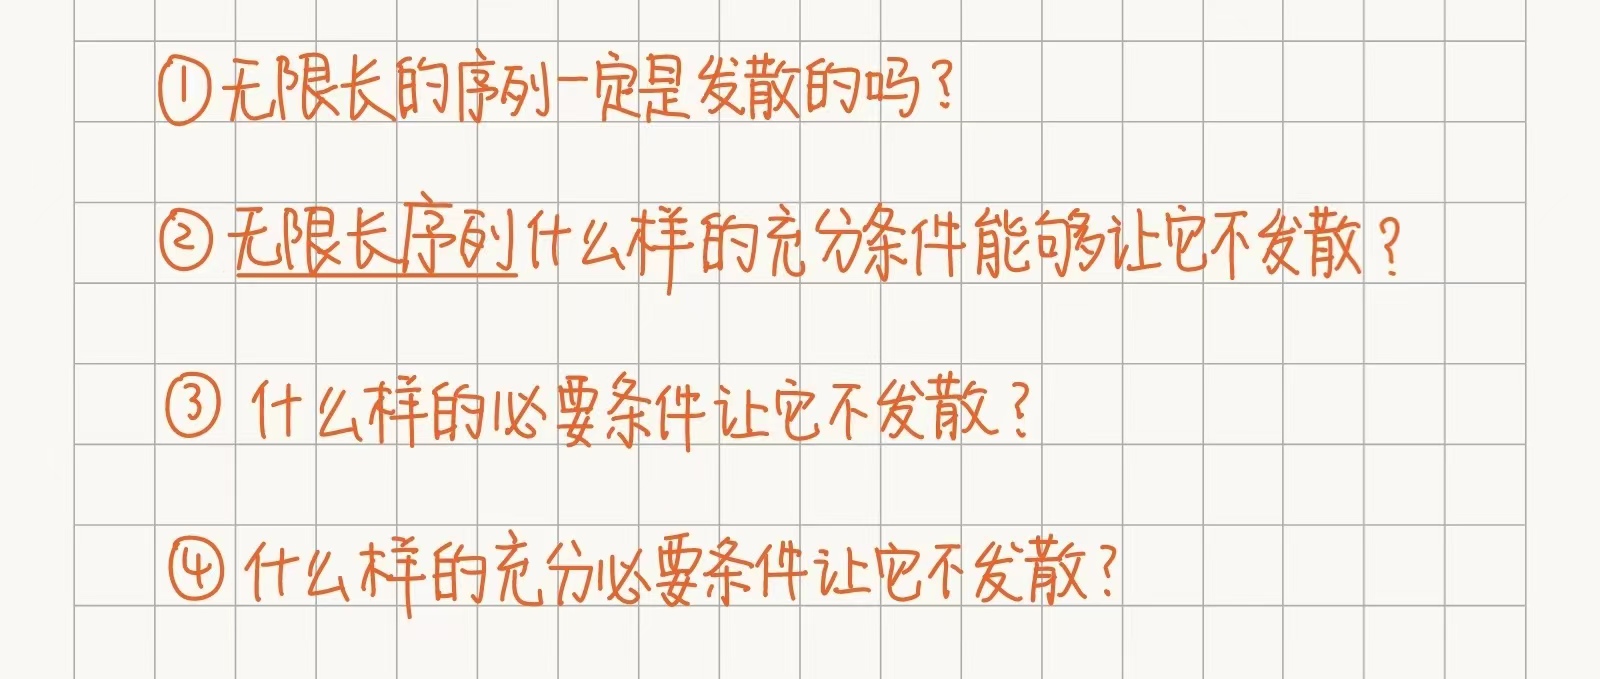 ①无限长的序列一定是发散的吗?
②无限长序列什么样的充分条件能够让它不发散?
③ 什么样的必要条件让它不发散?
④ 什么样的充分必要条件让它不发散?